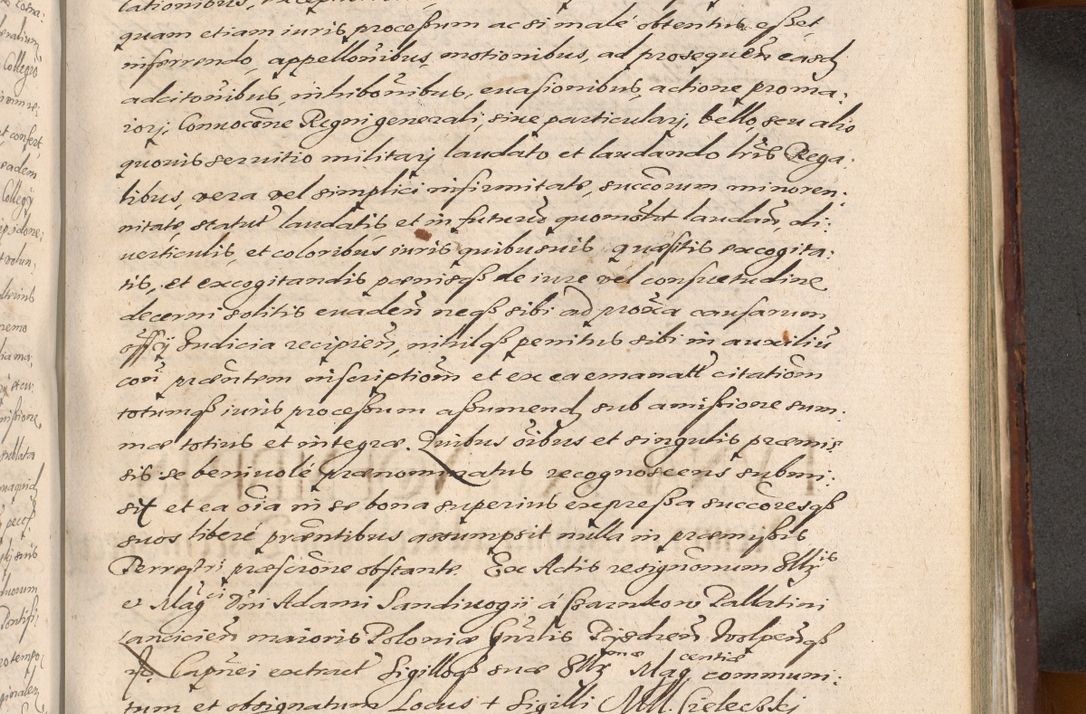 quam etiam iuris processum ac si male obtentis esset
inferrendo, appellõnibus, motionibus, ad prosequeñ easdẽ
adcitõnibus, inhibõnibus, euasionibus, actione proma:
iorj, Connocõne Regni generali, siue particularj, bello, seu alio
quouis seruitio militarj laudato et laudando lrĩs Rega:
libus, vera vel simplici infirmitate, succõrum minoren:
nitate statut̃ laudatis, et in futurũ quomõlt laudañ, di:
uerticulis, et coloribus iuris quibusuis quæsitis excogita:
tis, et excogitandis pœnisqȝ de iure vel consuetudine
decerni solitis euadeñ neqȝ sibi ad proxĩa causarum
offĩcij Judicia recipieñ, nihilqȝ penitus sibi in auxiliũ
coñ præntem inscriptioñm et ex ea emanatt̃ citatioñm
totumqȝ iuris processum assumendẽ sub amissione sum:
mæ totius et integræ. Quibus oĩbus et singulis præmis:
sis se beniuolé prænominatus recognoscens submi:
sit et ea oĩa in se bona superius expressa succõresqȝ
suos liberé prœ̃ntibus assumpsit nulla in præmissis
Terrestri præscrõne obstante. Ex Actis resignõnum Illris
et Magci Dñi Adami Sandiuogij á Czarnkow Pallatini
Lancicieñ maioris Poloniæ Gñrlis Pijzdreñ Wolpeñqȝ
Capñei extract̃ Sigilloqȝ suæ Illrmæ Magcentiæ communi:
tum et obsignatum Locus + Sigilli M. Cielecski